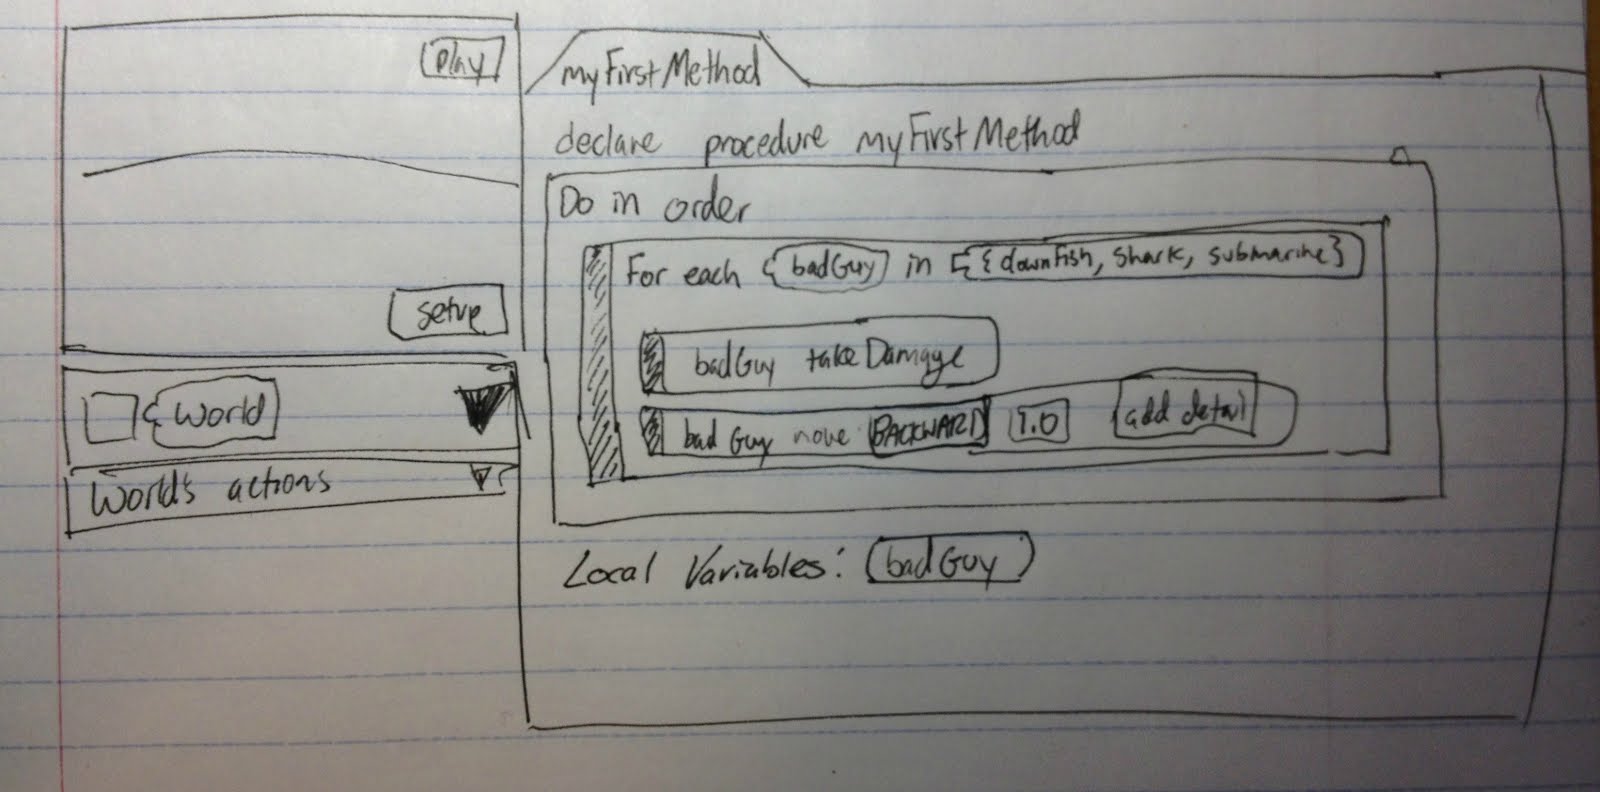 play
setup
{world
World's actions
myFirstMethod
declare procedure myFirstMethod
Do in order
For each {badGuy} in [{clownFish, Shark, submarine}
badGuy takeDamage
bad Guy move BACKWARD 1.0 add detail
Local Variables: badGuy